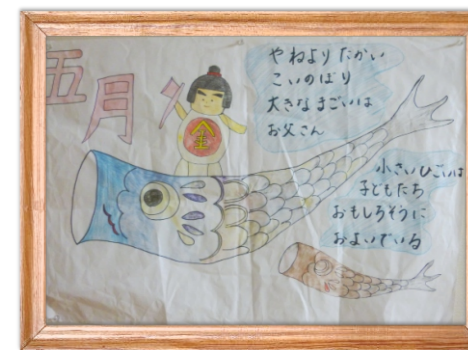 五月
金
やねより たかい
こいのぼり
大きなまごいは
お父さん
小さいひごいは
子どもたち
おもしろそうに
およいでいる